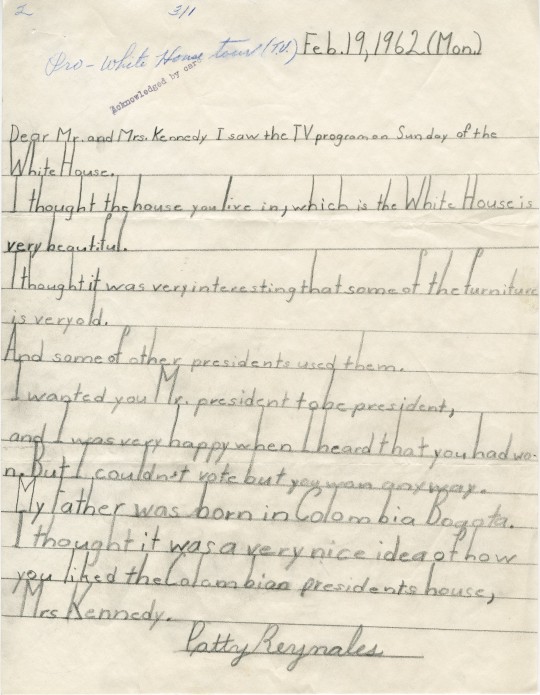 2 3/1
Pro-White House tour (T.V.)
Acknowledged by card
Feb. 19, 1962 (Mon.)
Dear Mr. and Mrs. Kennedy I saw the TV program on Sunday of the
White House.
I thought the house you live in, which is the White House is
very beautiful.
I thought it was very interesting that some of the furniture
is very old.
And some of other presidents used them.
I wanted you Mr. president to be president,
and I was very happy when I heard that you had wo-
n. But I couldn't vote but you won anyway.
My father was born in Colombia Bogota.
I thought it was a very nice idea of how
you liked the Colombian presidents house,
Mrs Kennedy.
Patty Reynales